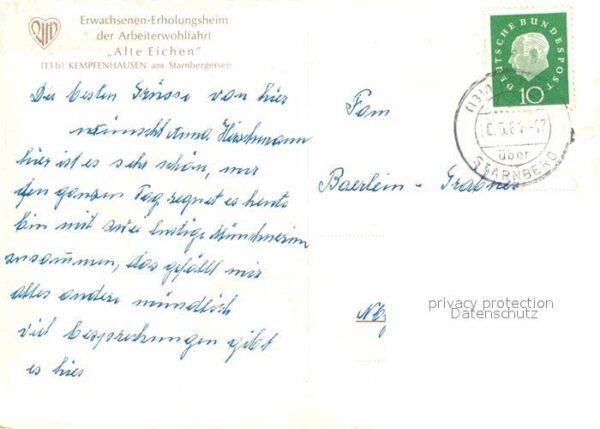 Erwachsenen-Erholungsheim
der Arbeiterwohlfahrt
„Alte Eichen"
(13b) KEMPFENHAUSEN am Starnbergersee
Die besten Grüsse von hier
wünscht Anna Hirschmann
hier ist es sehr schön, nur
den ganzen Tag regnet es heute
bin mit zwei lustige Münchnerin
zusammen, das gefällt mir
alles andere mündlich
viel Besprechungen gibt
es hier
Fam
Baerlein - Grabner
DEUTSCHE BUNDESPOST
10
über
STARNBERG
privacy protection
Datenschutz